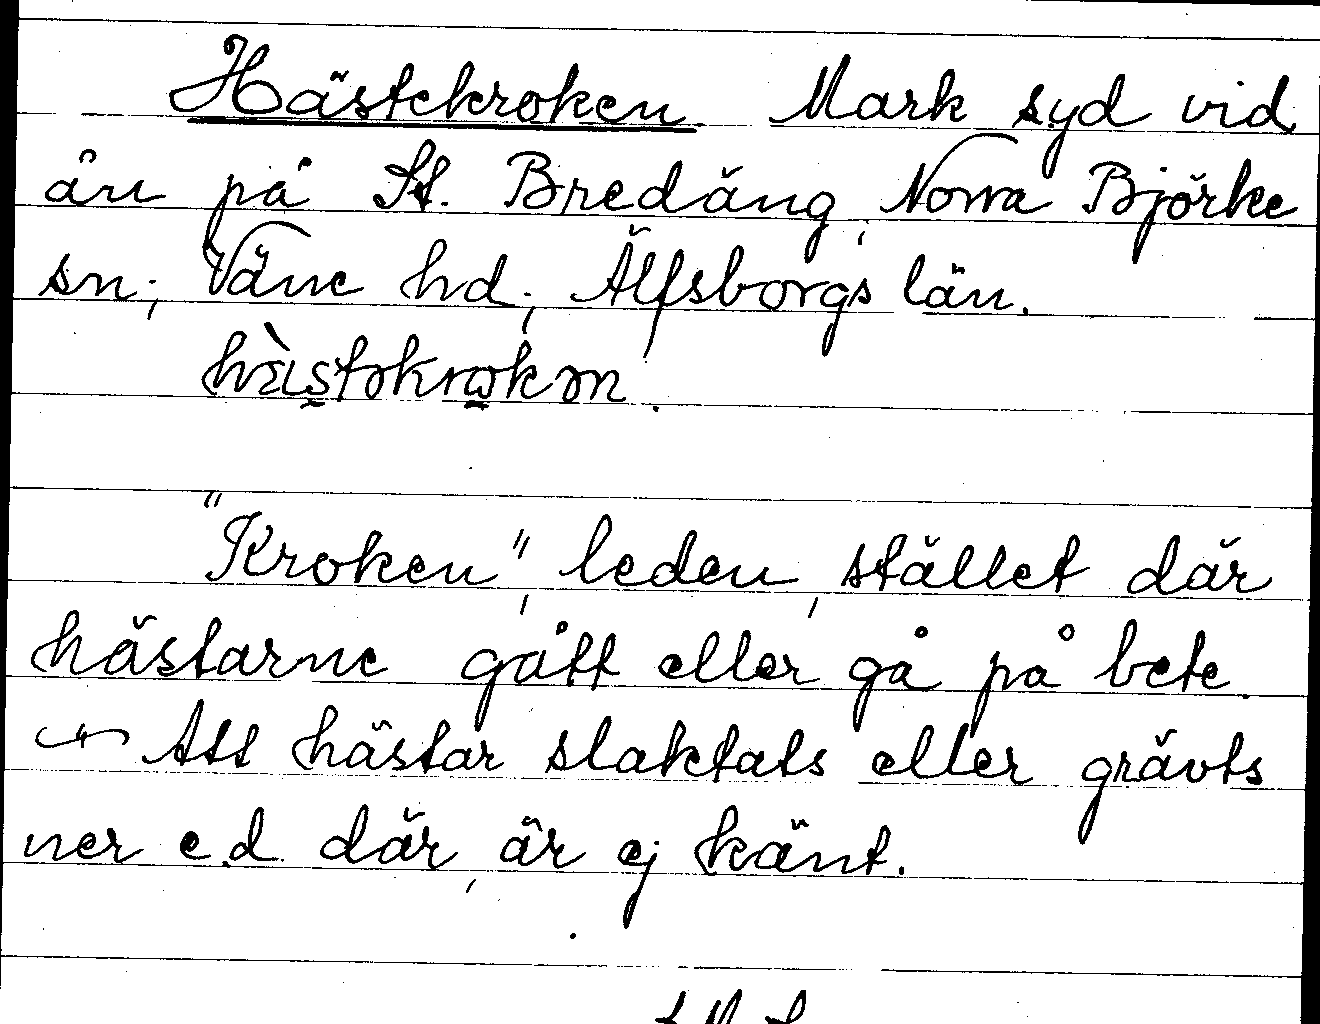 Hästekroken. Mark syd vid
ån på St. Bredäng, Norra Björke
sn; Väne hd, Älfsborgs län.
"Kroken", leden, stället där
hästarne gått eller gå på bete.
Att hästar slaktats eller grävts
ner e.d. där, är ej känt.